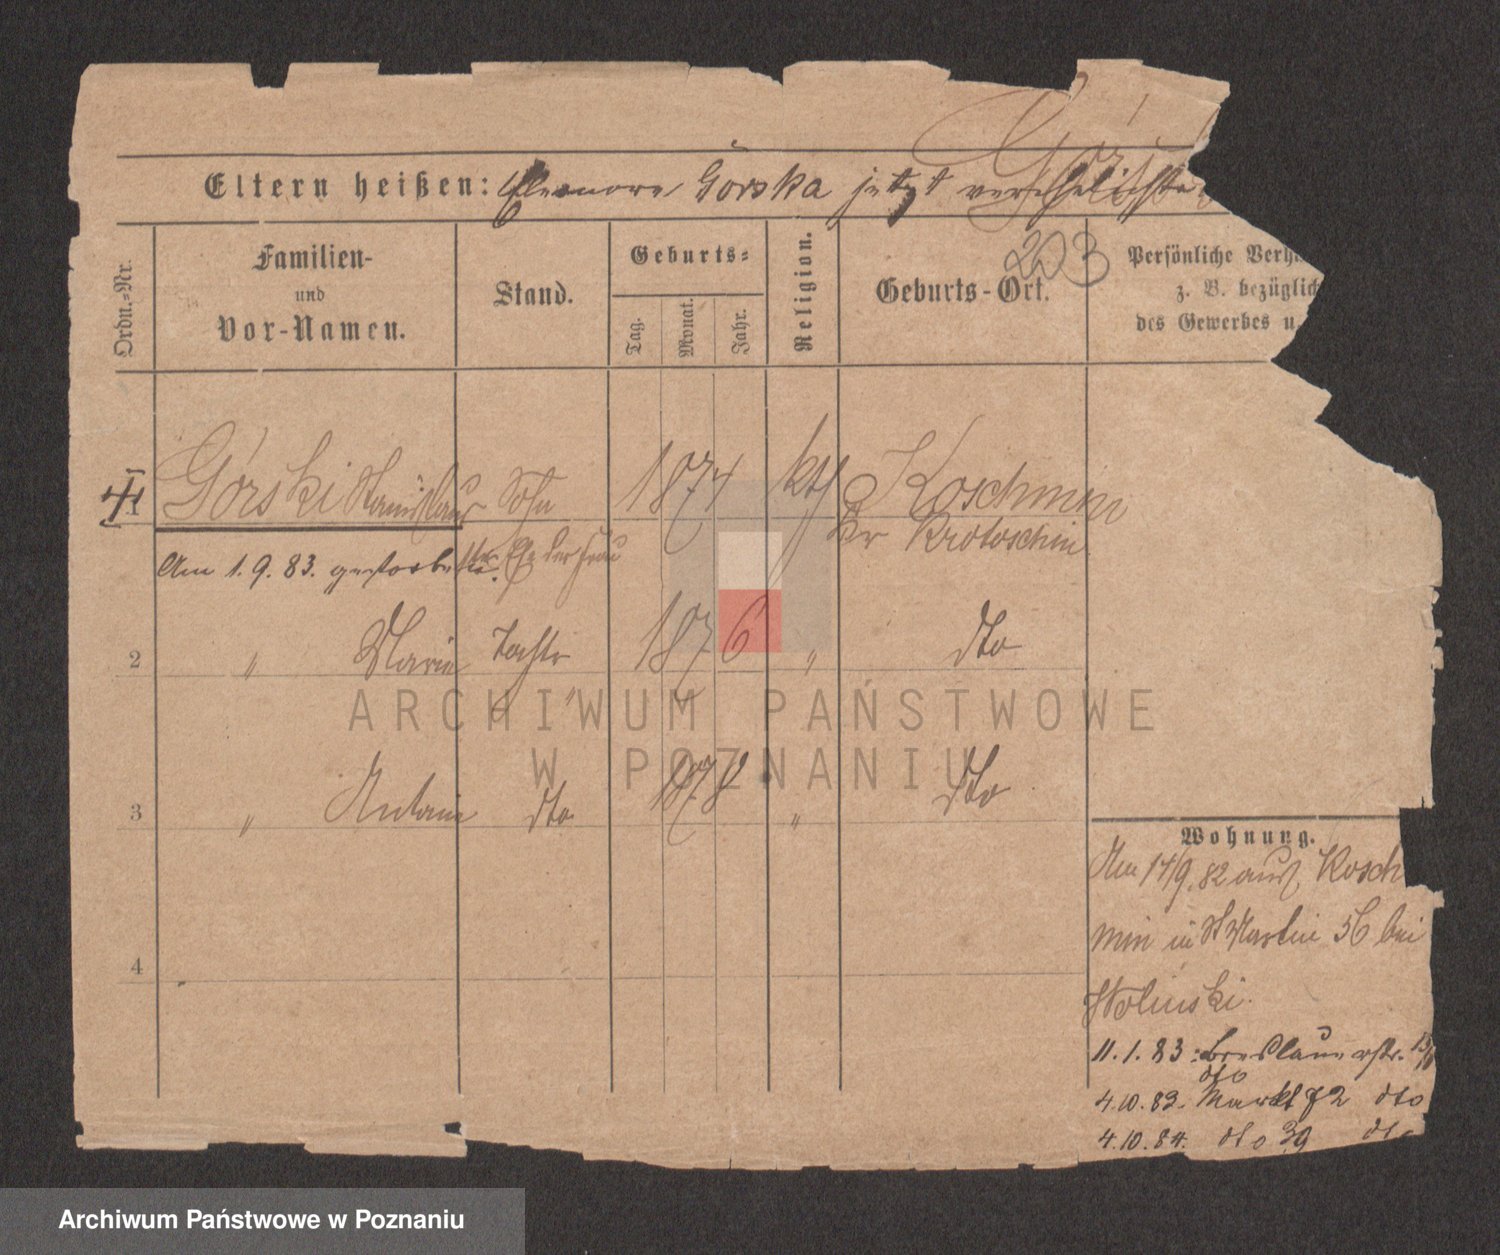 Gór
Eltern heißen: Eleonore Górska jetzt verehelichte
203
Ordn.=Nr.
Familien- und Vor-Namen.
Stand.
Geburts=
Tag.
Monat.
Jahr.
Religion.
Geburts-Ort.
Persönliche Verh
z. B. bezüglich
des Gewerbes u.
1 Górski Stanislaus Sohn 1874 kth Koschmin
Kr Krotoschin
Am 1.9.83. gestorben. der Frau
2 " Marie Tochter 1876 " dto
3 " Antonie dto 1878 " dto
4
Wohnung.
Am 14/9.82 aus Kosch
min in St Martin 56 bei
Wolinski.
11.1.83: Breslauerstr. 13/14
dto
4.10.83. Markt 72 dto
4.10.84. dto 39 dto
ARCHIWUM PAŃSTWOWE
W POZNANIU
Archiwum Państwowe w Poznaniu